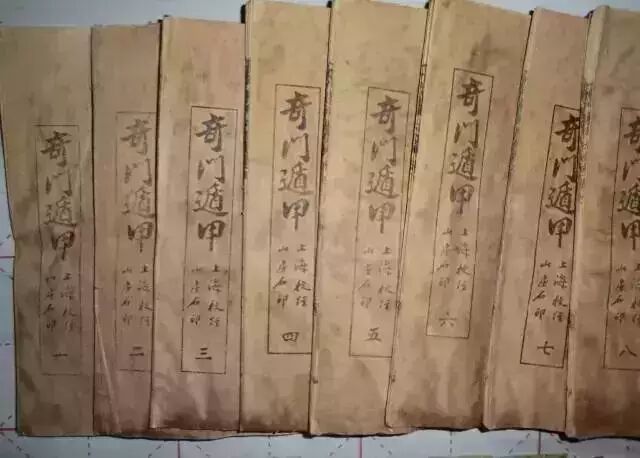 奇门遁甲
上海校经
山房石印
一
奇门遁甲
上海校经
山房石印
二
奇门遁甲
上海校经
山房石印
三
奇门遁甲
上海校经
山房石印
四
奇门遁甲
上海校经
山房石印
五
奇门遁甲
上海校经
山房石印
六
奇门遁甲
上海校经
山房石印
七
奇门遁甲
上海校经
山房石印
八